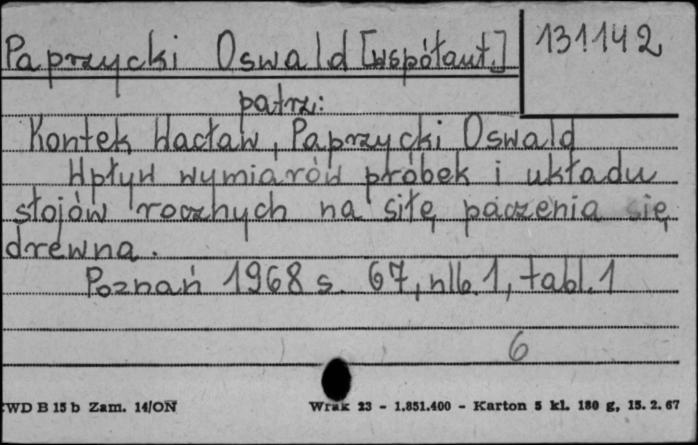 Paprzycki Oswald [współaut.]
131142
patrz:
Kontek Wacław, Paprzycki Oswald
Wpływ wymiarów próbek i układu
słojów rocznych na siłę paczenia się
drewna.
Poznań 1968 s. 67, nlb. 1, tabl. 1
6
WD B 15 b Zam. 14/ON Wrak 23 - 1.851.400 - Karton 5 kl. 180 g, 15. 2. 67